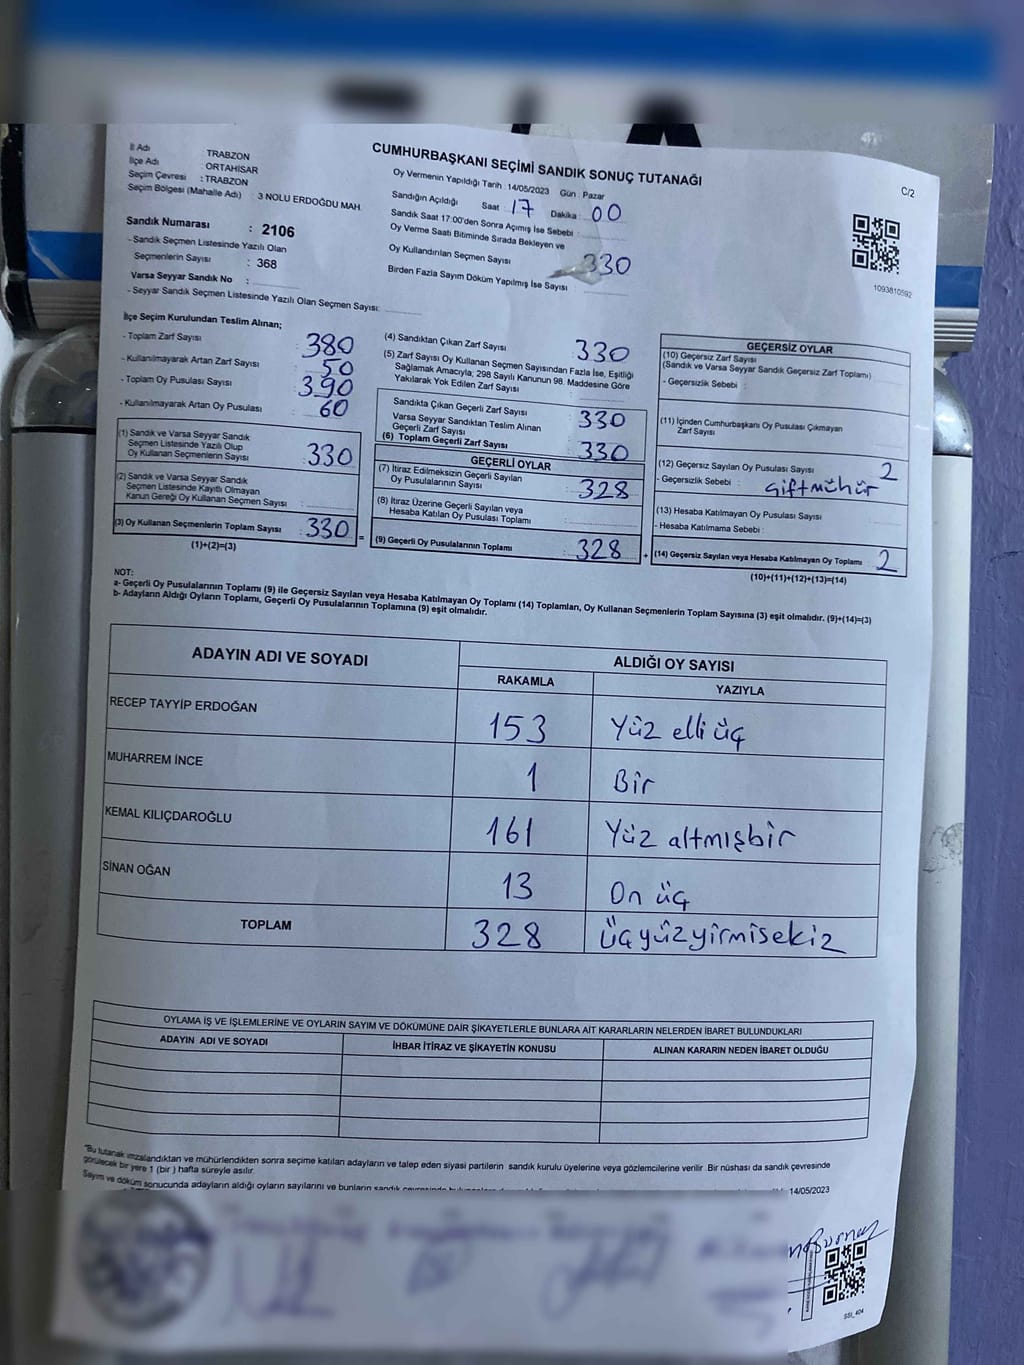 CUMHURBAŞKANI SEÇİMİ SANDIK SONUÇ TUTANAĞI
C/2
İl Adı : TRABZON
İlçe Adı : ORTAHİSAR
Seçim Çevresi : TRABZON
Seçim Bölgesi (Mahalle Adı) 3 NOLU ERDOĞDU MAH.
Sandık Numarası : 2106
- Sandık Seçmen Listesinde Yazılı Olan
Seçmenlerin Sayısı : 368
Varsa Seyyar Sandık No :
- Seyyar Sandık Seçmen Listesinde Yazılı Olan Seçmen Sayısı:
Oy Vermenin Yapıldığı Tarih : 14/05/2023 Gün : Pazar
Sandığın Açıldığı Saat : 17 Dakika : 00
Sandık Saat 17:00'den Sonra Açımış İse Sebebi :
Oy Verme Saati Bitiminde Sırada Bekleyen ve
Oy Kullandırılan Seçmen Sayısı : 330
Birden Fazla Sayım Döküm Yapılmış İse Sayısı
1093810592
İlçe Seçim Kurulundan Teslim Alınan;
- Toplam Zarf Sayısı : 380
- Kullanılmayarak Artan Zarf Sayısı : 50
- Toplam Oy Pusulası Sayısı : 390
- Kullanılmayarak Artan Oy Pusulası : 60
(1) Sandık ve Varsa Seyyar Sandık
Seçmen Listesinde Yazılı Olup
Oy Kullanan Seçmenlerin Sayısı : 330
(2) Sandık ve Varsa Seyyar Sandık
Seçmen Listesinde Kayıtlı Olmayan
Kanun Gereği Oy Kullanan Seçmen Sayısı :
(3) Oy Kullanan Seçmenlerin Toplam Sayısı : 330 =
(1)+(2)=(3)
(4) Sandıktan Çıkan Zarf Sayısı : 330
(5) Zarf Sayısı Oy Kullanan Seçmen Sayısından Fazla İse, Eşitliği
Sağlamak Amacıyla; 298 Sayılı Kanunun 98. Maddesine Göre
Yakılarak Yok Edilen Zarf Sayısı :
Sandıkta Çıkan Geçerli Zarf Sayısı : 330
Varsa Seyyar Sandıktan Teslim Alınan
Geçerli Zarf Sayısı :
(6) Toplam Geçerli Zarf Sayısı : 330
GEÇERLİ OYLAR
(7) İtiraz Edilmeksizin Geçerli Sayılan
Oy Pusulalarının Sayısı : 328
(8) İtiraz Üzerine Geçerli Sayılan veya
Hesaba Katılan Oy Pusulası Toplamı :
(9) Geçerli Oy Pusulalarının Toplamı : 328 +
GEÇERSİZ OYLAR
(10) Geçersiz Zarf Sayısı
(Sandık ve Varsa Seyyar Sandık Geçersiz Zarf Toplamı) :
- Geçersizlik Sebebi :
(11) İçinden Cumhurbaşkanı Oy Pusulası Çıkmayan
Zarf Sayısı :
(12) Geçersiz Sayılan Oy Pusulası Sayısı : 2
- Geçersizlik Sebebi : Çiftmühür
(13) Hesaba Katılmayan Oy Pusulası Sayısı :
- Hesaba Katılmama Sebebi :
(14) Geçersiz Sayılan veya Hesaba Katılmayan Oy Toplamı : 2
(10)+(11)+(12)+(13)=(14)
NOT:
a- Geçerli Oy Pusulalarının Toplamı (9) ile Geçersiz Sayılan veya Hesaba Katılmayan Oy Toplamı (14) Toplamları, Oy Kullanan Seçmenlerin Toplam Sayısına (3) eşit olmalıdır. (9)+(14)=(3)
b- Adayların Aldığı Oyların Toplamı, Geçerli Oy Pusulalarının Toplamına (9) eşit olmalıdır.
ADAYIN ADI VE SOYADI
ALDIĞI OY SAYISI
RAKAMLA YAZIYLA
RECEP TAYYİP ERDOĞAN 153 Yüz elli üç
MUHARREM İNCE 1 Bir
KEMAL KILIÇDAROĞLU 161 Yüz altmışbir
SİNAN OĞAN 13 On üç
TOPLAM 328 üçyüzyirmisekiz
OYLAMA İŞ VE İŞLEMLERİNE VE OYLARIN SAYIM VE DÖKÜMÜNE DAİR ŞİKAYETLERLE BUNLARA AİT KARARLARIN NELERDEN İBARET BULUNDUKLARI
ADAYIN ADI VE SOYADI İHBAR İTİRAZ VE ŞİKAYETİN KONUSU ALINAN KARARIN NEDEN İBARET OLDUĞU
"Bu tutanak imzalandıktan ve mühürlendikten sonra seçime katılan adayların ve talep eden siyasi partilerin sandık kurulu üyelerine veya gözlemcilerine verilir .Bir nüshası da sandık çevresinde
görülecek bir yere 1 (bir ) hafta süreyle asılır.
Sayım ve döküm sonucunda adayların aldığı oyların sayılarını ve bunların sandık 14/05/2023
SSI_404